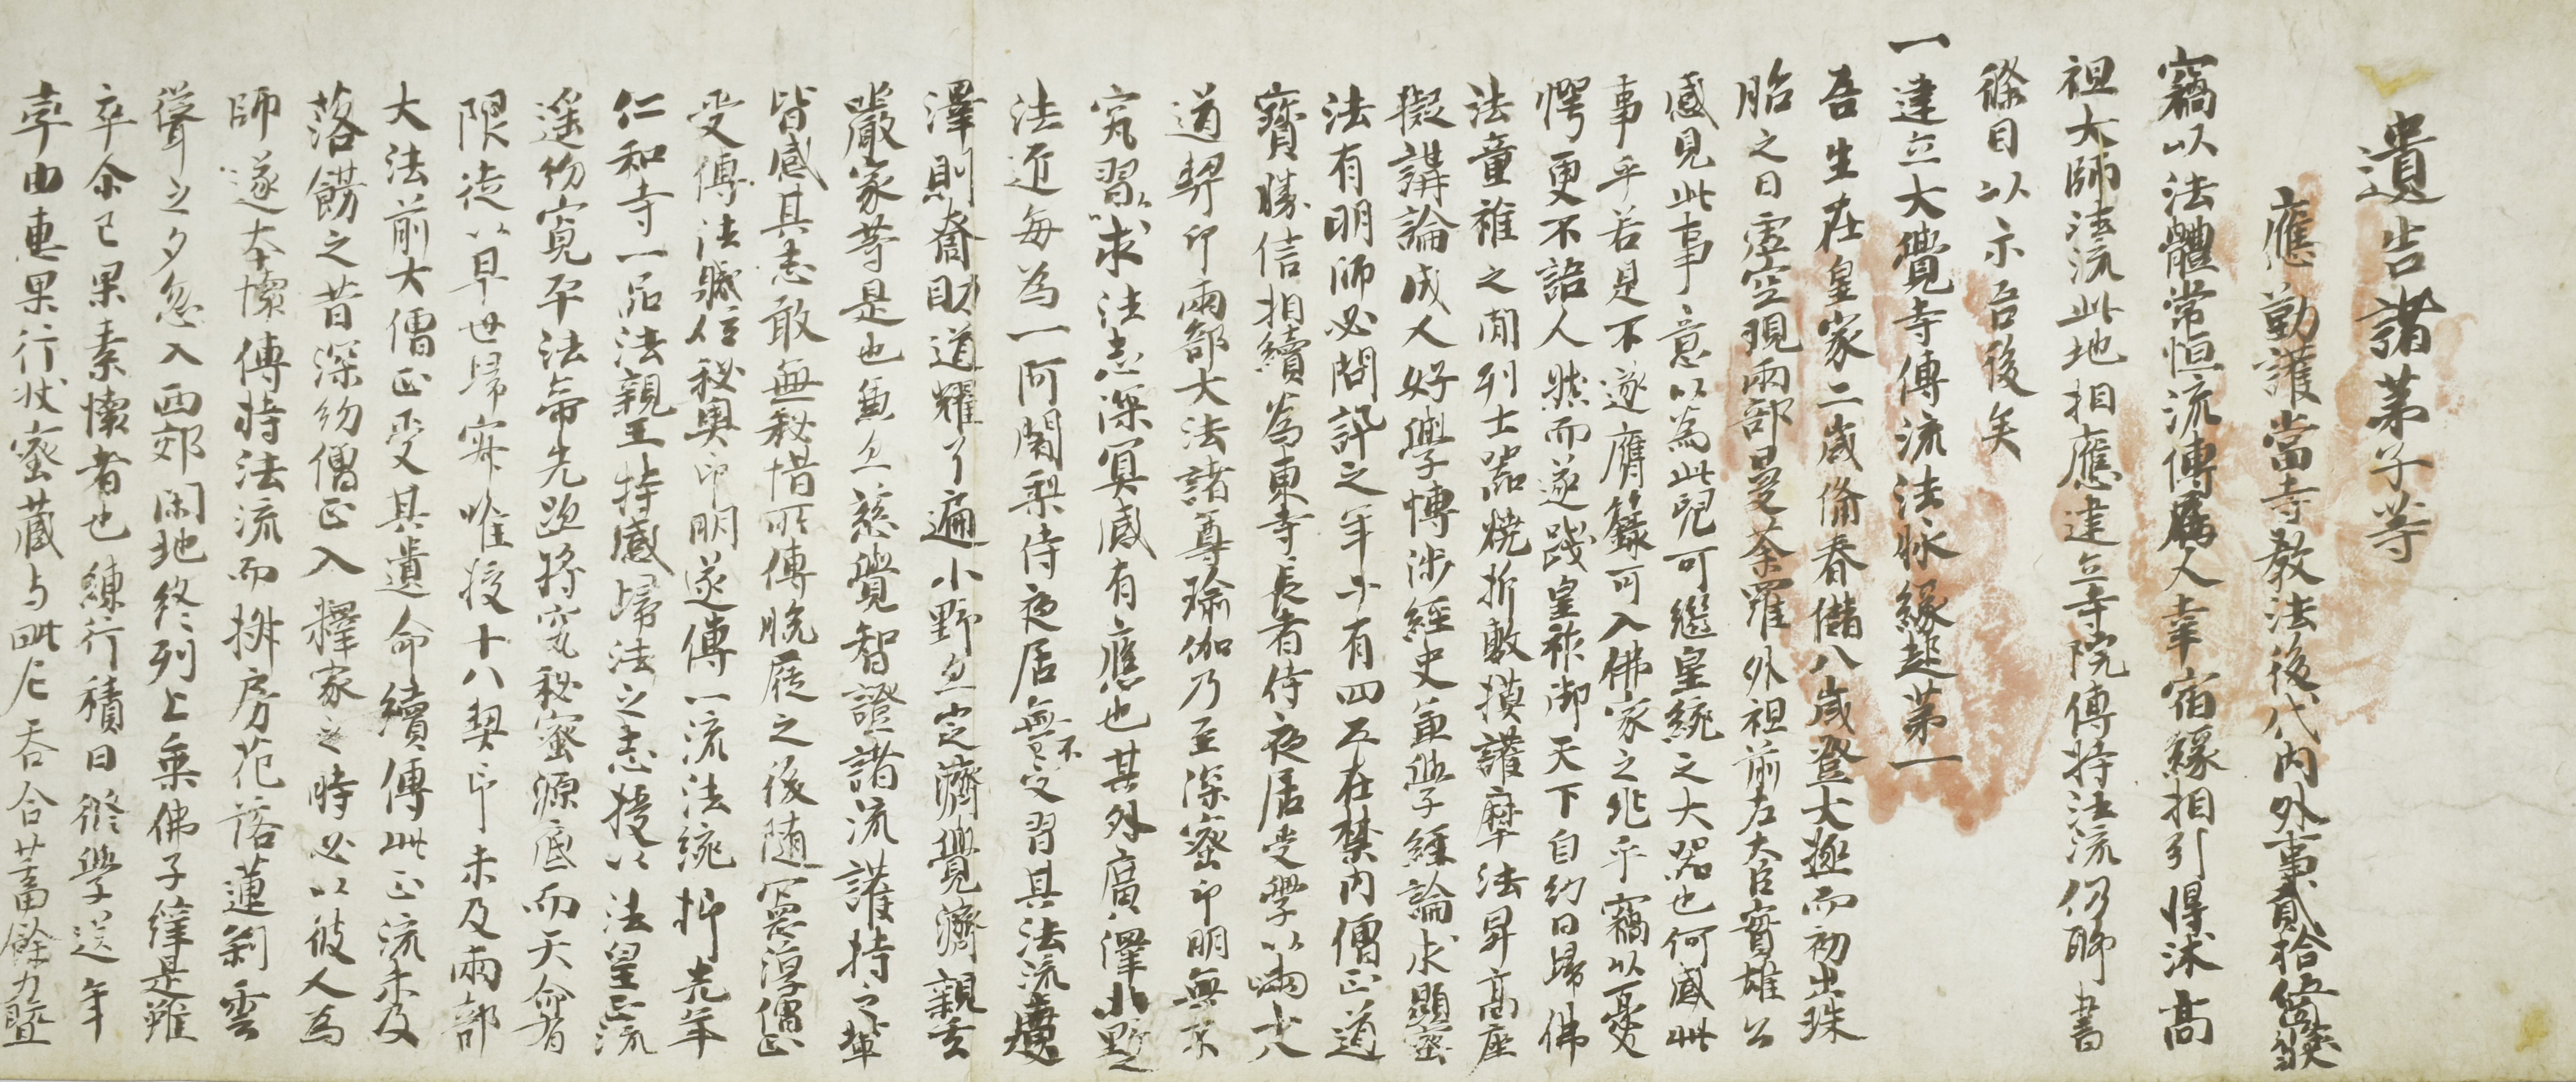 遺告諸弟子等
應勤護當寺教法後代内外事貳拾箇條
竊以法體常恒流傳屬人幸宿緣相引得沐高
祖大師法流此地相應建立寺院傳持法流仍聊書
條目以示吾後矣
一建立大覺寺傳流法脉緣起第一
吾生在皇家二歲備春儲八歲登大極而初出珠
胎之日虚空現兩部曼荼羅外祖前左大臣實雄公
感見此事意以為此兒可繼皇統之大器也何感此
事乎若是不遂膺籙可入佛家之兆乎竊以憂
愕更不語人然而遂踐皇祚御天下自幼日歸佛
法童稚之間列士器燒折敷摸護摩法昇高座
擬講論成人好學博涉經史兼學經論求顯密
法有明師必問訊之年廿有四五在禁内僧正道
寶勝信相續為東寺長者侍夜居受學以兩十八
道契印兩部大法諸尊瑜伽乃至深密印明無不
究習以求法志深冥感有應也其外廣澤小野之
法匠每為一阿闍梨侍夜居無不受習其法流廣
澤則喬助道耀了遍小野亦定濟覺濟親玄
嚴家等是也兼亦慈覺智證諸流護持之輩
皆感其志敢無秘惜所傳脫屣之後随宮淳僧正
受傳法職位秘奥印明遂傳一流法統抑先年
仁和寺一品法親王持感歸法之志授以法皇正流
遥幼寛平法帝先跡將究秘密源底而天命有
限徒以早世歸寂唯授十八契印未及兩部
大法前大僧正受其遺命續傳此正流未及
落餝之昔深約僧正入釋家之時必以彼人為
師遂本懷傳持法流而排房花落蓮刹雲
聳之夕忽入西郊閑地終列上乘佛子緯是雖
卒余已果素懷者也練行積日修學送年
韋由惠果行狀密藏与此尼吞合蓄餘力暨